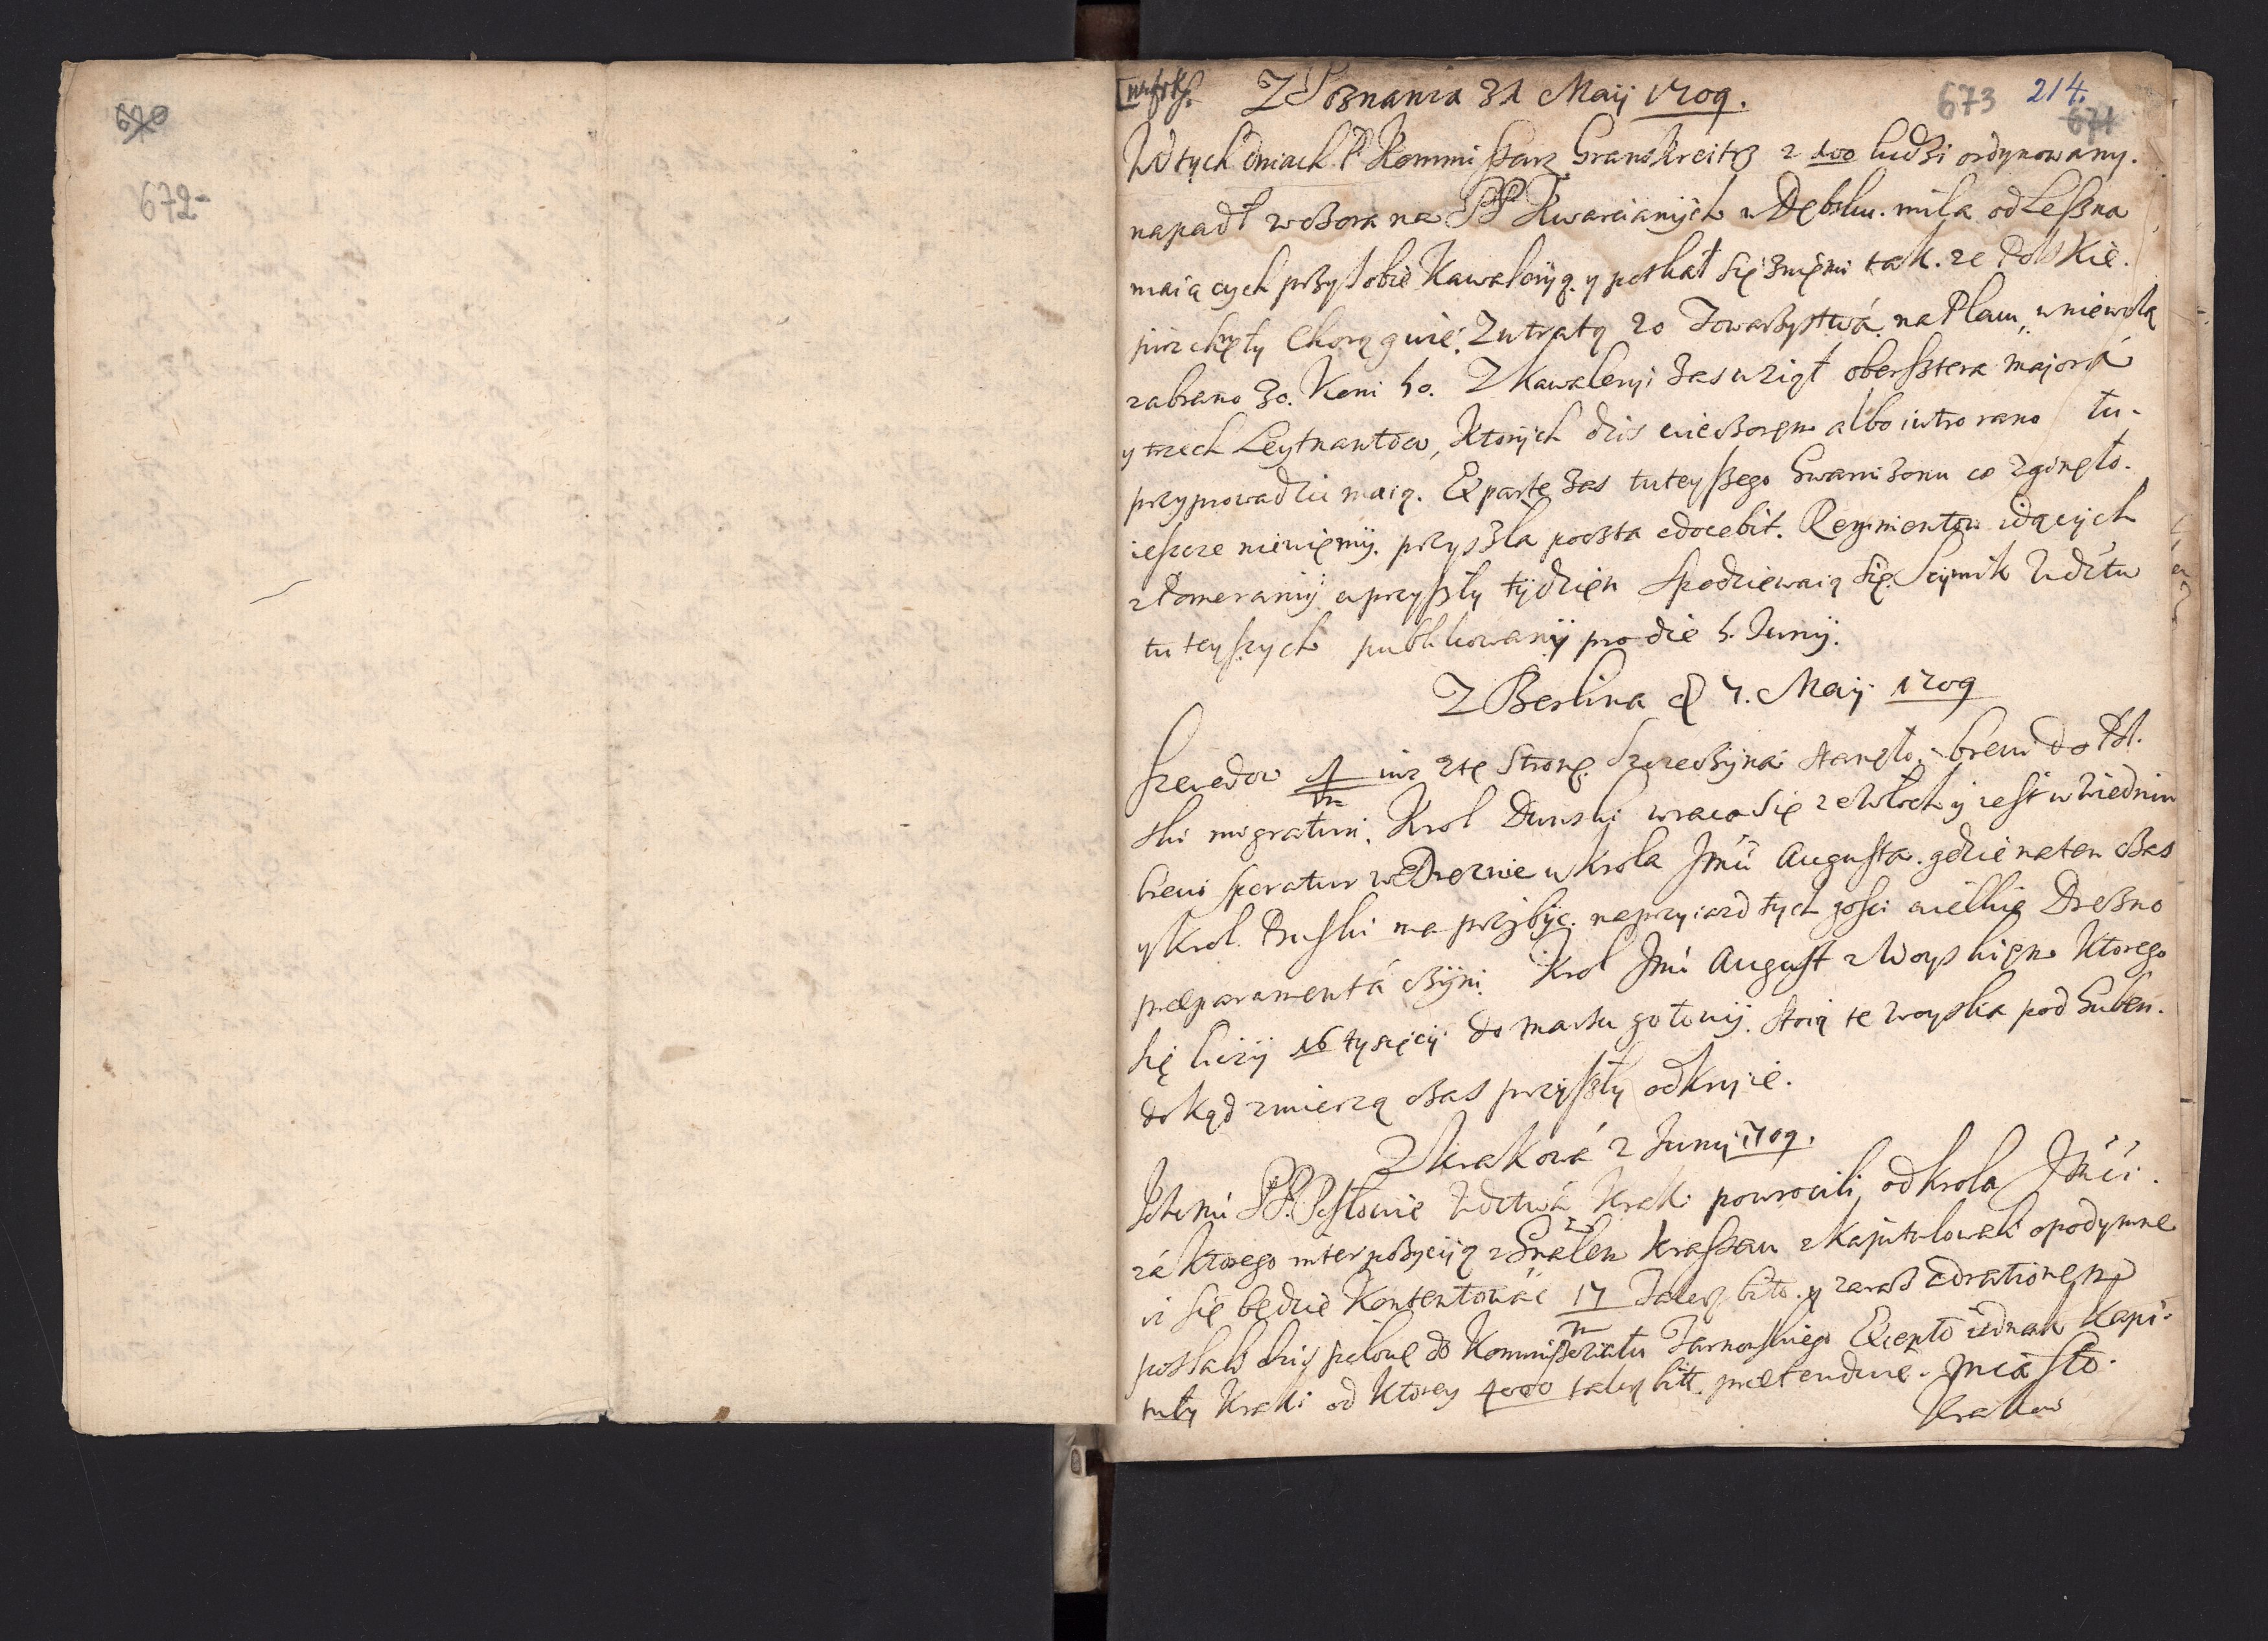 690
672-
673 214.
671
Z Poznania 31 Maij 1709.
W tych dniach P. Kommissarz Granskreitz z 100 ludzi ordynowany.
napadł wczora na PP Kwarcianych w Dębsku. mila od Leszna
maiących przy sobie Kawaleryą. y potkał się znięmi tak. ze Polskie.
pierzchęły Chorągwie. Z utratą 20 Towarzystwá na Placu, w niewolą
zabrano 30. Koni 50. Z Kawaleryi zas wziął obersztera majorá
y trzech Leytnantow, Ktorych dzis wieczorem albo iutro rano tu
przyprowadzic maią. Ex parte zas tuteyszego Gwarnizonu co zginęło.
ieszcze niewięmy. przyszła poczta edocebit. Regimentow idących
z Pomeranij w przyszły tydzien spodziewaią się. Seymik Wdztw
tuteyszych publikowany pro die 5. Junij.
Z Berlina 7. Maij 1709
Szwedow iuz z tę Stronę Szczeczyna stanęło. brevi do Pol
ski migraturi. Krol Dunski wraca się ze Włoch y iest w Wiedniu
brevi speratur w Dreznie u krola Jmci Augusta. gdzie na ten czas
y Krol. Pruski ma przybyc. na przyiazd tych gosci wielkie Drezno
præparamentá czyni. Krol Jmć August z Woyskięm Ktorego
się liczy 16 tysięcy do marszu gotowy. stoią te woyska pod Guben.
dokąd zmierzą czas przyszły odkryie.
Z Krakowá 2 Junij 1709.
Ichmć PP. Posłowie Wdztwá Krak: powrocili od krola Jmci.
zá Ktorego interpozycyią z Gnałem Krassau zkapitulowali o podymne
iz się będzie kontentowác 17 Taler. bito. y zaraz
posłali do Kommissariatu Tarnowskiego Excepto iednak Kapi-
tuły Krak: od Ktorey 4000 taler bitt. prætenduie. Miasto.
Krakow